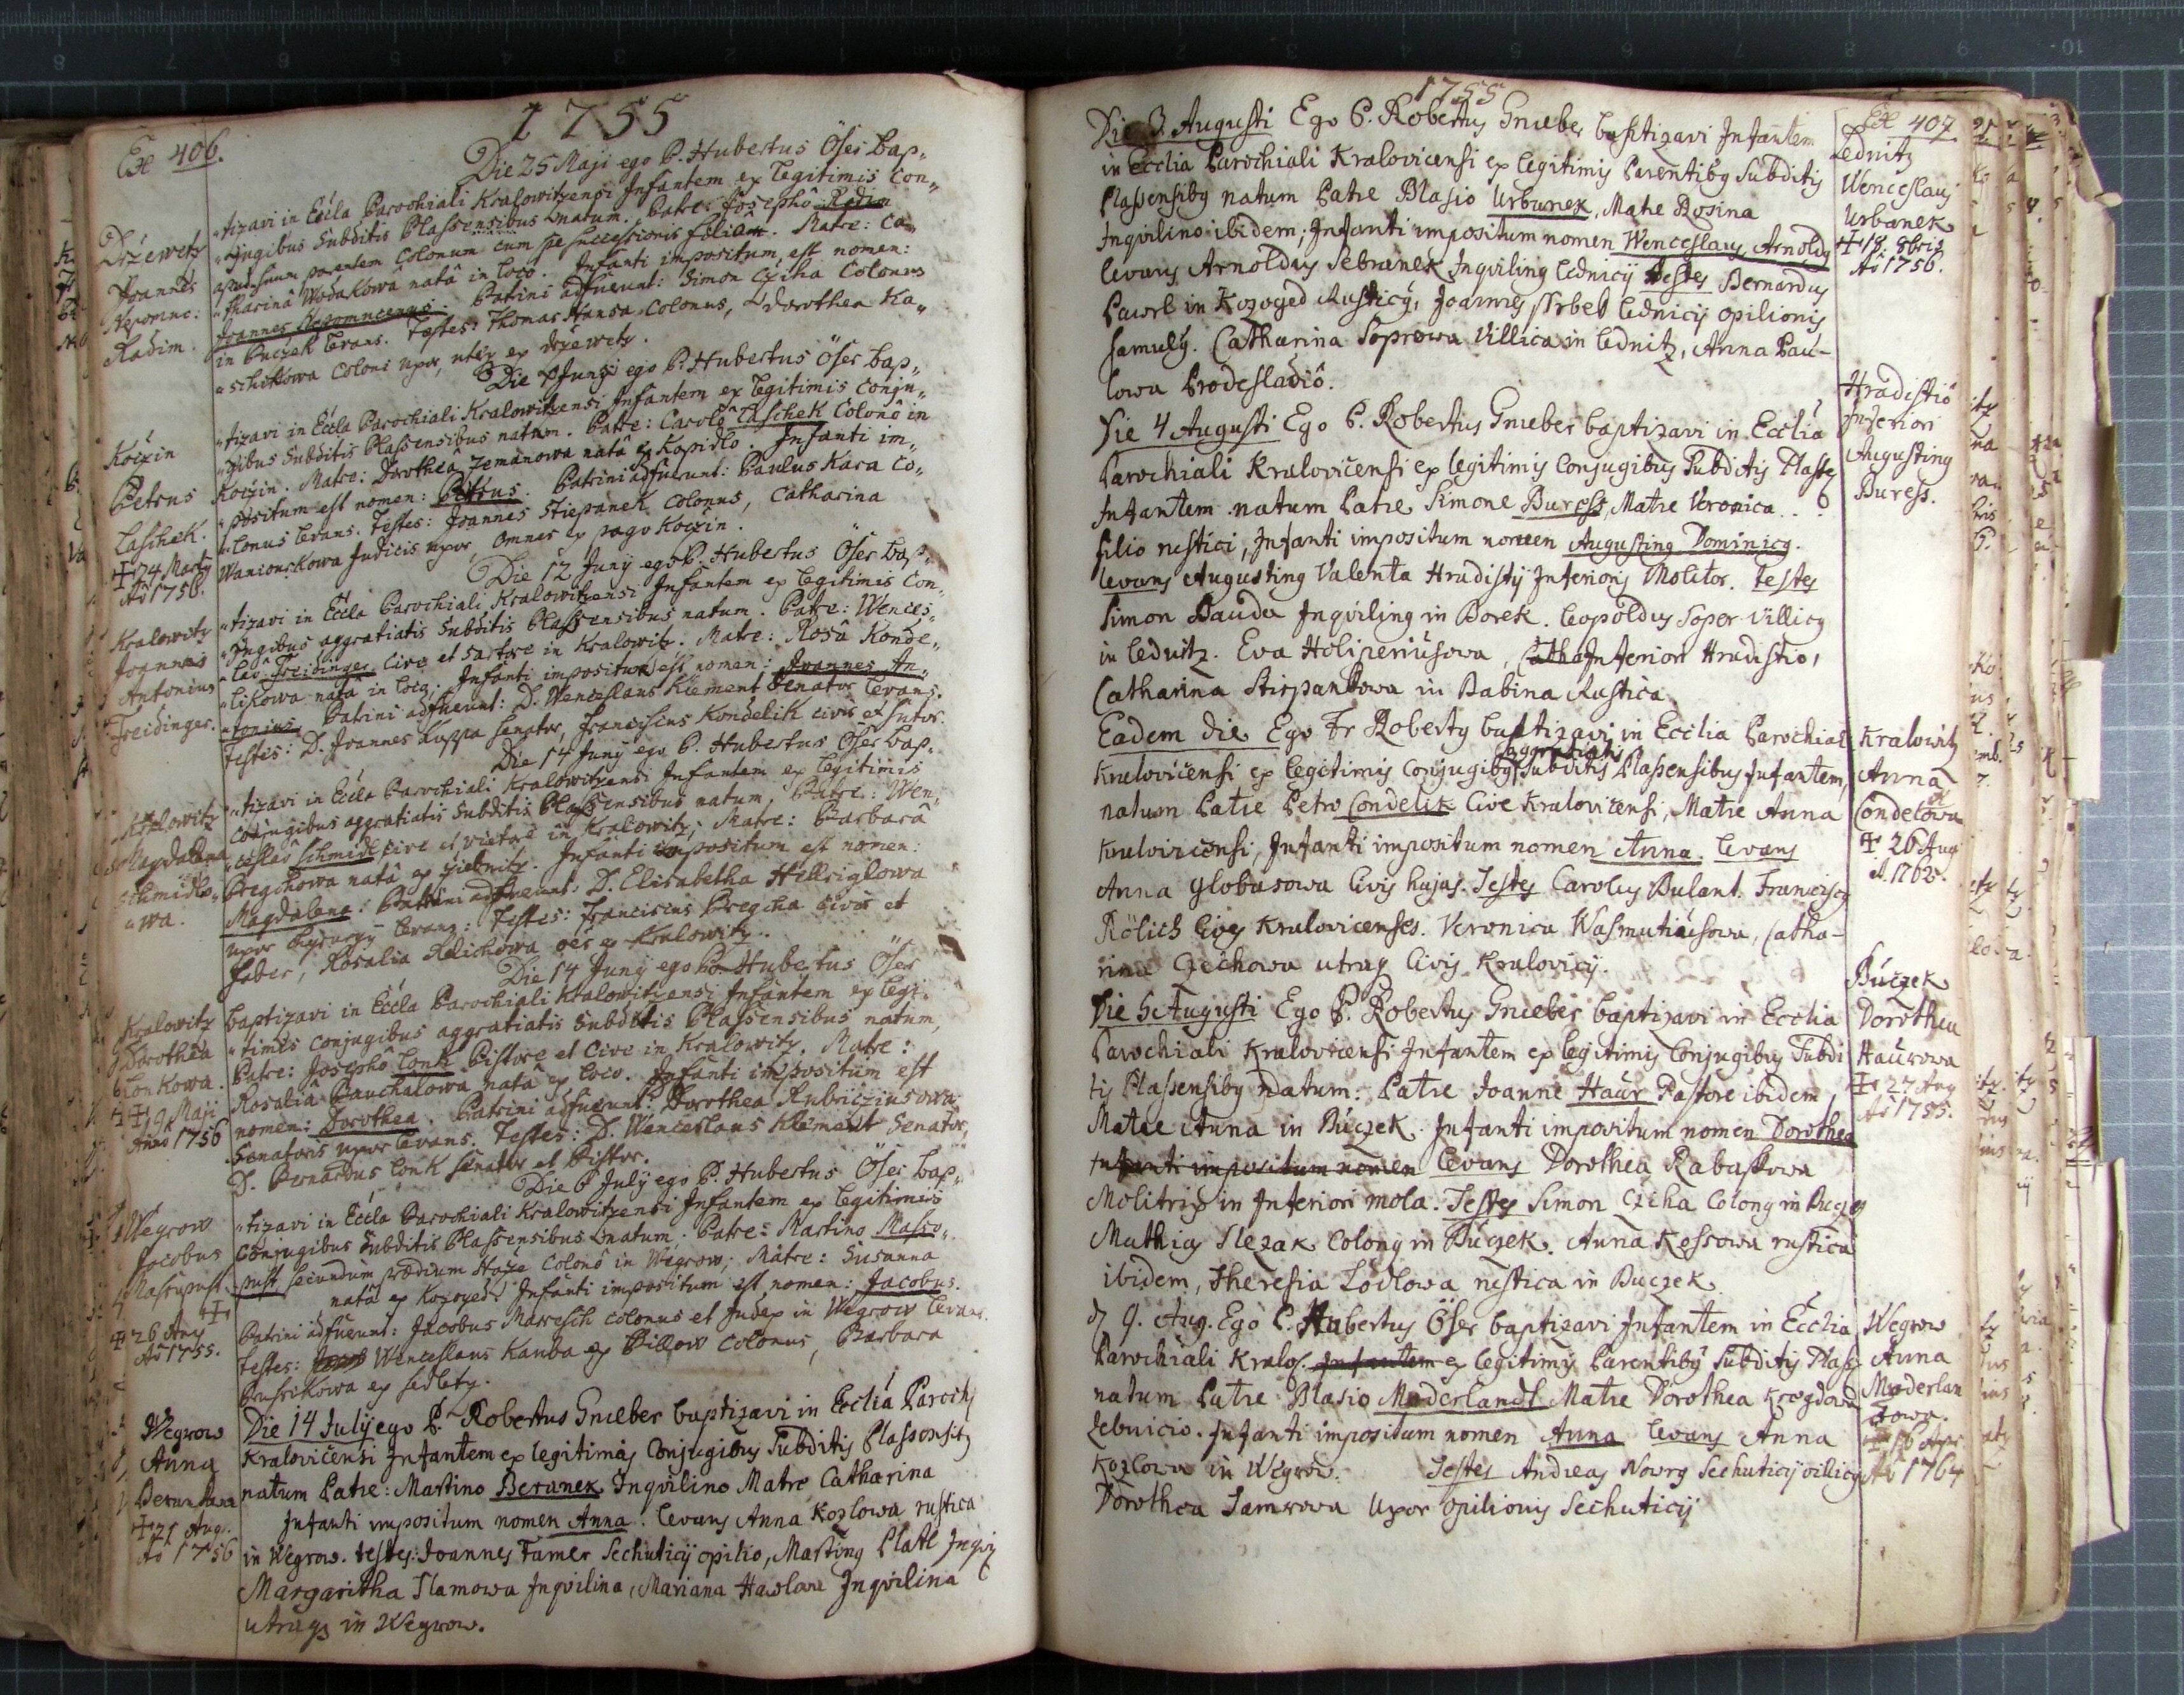 1755
406.
Die 25 Maji ego P. Hubertus Öser bap„
„tizavi in Eccla Parochiali Kralowitzensi Infantem ex legitimis Con„
„jugibus Subditis Plassensibus natum. Patre: Josephô Radim
apud suum parentem Colonum cum spe successionis filiô. Matre: Ca„
„tharinâ Wodakowâ natâ in loco. Infanti impositum est nomen:
Joannes Nepomucenus. Patrini adfuerunt: Simon Cziha Colonus
in Buczek levans. Testes: Thomas Hansa Colonus, Dorothea Ka„
„schikowa Coloni uxor, uterq ex Drzewetz.
Drzewetz
Joannes
Nepomuc:
Radim.
Die 7 Junÿ ego P. Hubertus Öser bap„
„tizavi in Eccla Parochiali Kralowitzensi Infantem ex legitimis Conju„
„gibus Subditis Plassensibus natum. Patre: Carolô Laschek Colonô in
Koczin. Matre: Dorotheâ Zemanowa natâ ex Kopidlo. Infanti im„
„positum est nomen: Petrus. Patrini adfuerunt: Paulus Kara Co„
„lonus levans. Testes: Joannes Stiepanek Colonus, Catharina
Waniourkowa Judicis uxor omnes ex pago Koczin.
Koczin
Petrus
Laschek.
Aô 1756.
Die 12 Junÿ ego P. Hubertus Öser bap„
„tizavi in Eccla Parochiali Kralowitzensi Infantem ex legitimis Con„
„jugibus aggratiatis Subditis Plassensibus natum. Patre: Wences„
„laô Freidinger Cive et Sartore in Kralowitz. Matre: Rosâ Konde„
„likowa natâ in loco. Infanti impositum est nomen: Joannes An„
„tonius. Patrini adfuerunt: D. Wenceslaus Klement Senator levans.
Testes: D. Joannes Kuppa Senator, Franciscus Kondelik civis et Sutor.
Kralowitz
Joannes
Antonius
Freidinger.
Die 14 Junÿ ego P. Hubertus Öser bap„
„tizavi in Eccla Parochiali Kralowitzensi Infantem ex legitimis
Conjugibus aggratiatis Subditis Plassensibus natum. Patre: Wen„
„ceslaô Schmidt, cive et vietore in Kralowitz, Matre: Barbarâ
Bregchowa natâ ex Zielmitz. Infanti impositum est nomen:
Magdalena. Patrini adfuerunt: D. Elisabetha Hellriglowa
uxor Chyrurgÿ levans: Testes: Franciscus Bregcha civis et
faber, Rosalia Relichowa oes ex Kralowitz.
Kralowitz
Magdalena
Schmidto„
„wa.
Die 14 Junÿ ego P. Hubertus Öser
baptizavi in Eccla Parochiali Kralowitzensi Infantem ex legi„
„timis Conjugibus aggratiatis Subditis Plassensibus natum,
Patre: Josephô Lonk Pistore et Cive in Kralowitz. Matre:
Rosaliâ Pauchalowa natâ ex loco. Infanti impositum est
nomen: Dorothea. Patrini adfuerunt: Dorothea Kubricziusowa
Senatoris uxor levans. Testes: D. Wenceslaus Klement Senator,
D. Bernardus Lonk Senator et Pistor.
Kralowitz
Dorothea
Lonkowa.
9 Maji
Anno 1756
Die 6 Julÿ ego P. Hubertus Öser bap„
„tizavi in Eccla Parochiali Kralowitzensi Infantem ex legitimis
Conjugibus Subditis Plassensibus natum. Patre: Martino Masso„
„pust, secundum prædium Haze Colonô in Wegrow, Matre: Susanna
natâ ex Kozoged. Infanti impositum est nomen: Jacobus.
Patrini adfuerunt: Jacobus Maresch Colonus et Judex in Wegrow levans.
Testes: Wenceslaus Kauba ex Billow Colonus, Barbara
Brusikowa ex Sedletz.
Wegrow
Jacobus
Massopust
26 Aug
Aô 1755.
Die 14 Julÿ ego P. Robertus Gnieber baptizavi in Ecclia Paroch
Kralovicensi Infantem ex legitimis Conjugibus Subditis Plassensib
natum Patre: Martino Beranek Inqvilino Matre Catharina
Infanti impositum nomen Anna. levans Anna Kozlowa rustica
in Wegrow. testes: Joannes Tamer Sechuticij opilio, Martinq Platl Inqvi
Margaritha Slamowa Inqvilina, Mariana Hawlowe Inqvilina
utraq in Wegrow.
Wegrow
Anna
Berankova
21 Aug.
Aô 1756
1755
407
Die 3. Augusti Ego P. Robertus Gnieber baptizavi Infantem
in Ecclia Parochiali Kralovicensi ex legitimis Parentibq Subditis
Plassensibq natum Patre Blasio Urbanek, Matre Rosina
Inqvilino ibidem; Infanti impositum nomen Wenceslaq Arnoldq
levans Arnoldq Sebranek Inqvilinq Lednicij testes Bernardq
Pawel in Kozoged Rusticq, Joannes Skrbel Lednicij opilionis
famulq. Catharina Soprowa Villica in Lednitz, Anna Pau-
lowa Prodesladiô.
Lednitz
Wenceslaq
Urbanek
18. 8bris
Aô 1756.
Die 4 Augusti Ego P. Robertus Gnieber baptizavi in Ecclia
Parochiali Kralovicensi ex legitimis Conjugibus Subditis Plasse
Infantem natum Patre Simone Buress, Matre Veronica . .
filio rustici, Infanti impositum nomen Augustinq Dominicq.
levans Augustinq Valenta Hradistij Inferioris Molitor. testes
Simon Bauda Inqvilinq in Borek. Leopoldq Soper Villicq
in Lednitz. Eva Holiperiusova, Catha Inferiori Hradistio,
Catharina Stiepankowa in Babina Rustica.
Hradistio
Inferiori
Augustinq
Buress.
Eadem die Ego Fr Robertq baptizavi in Ecclia Parochiali
Kralovicensi ex legitimis Conjugibq aggratiatis Subditis Plassensibus Infantem,
natum Patre Petro Condelik Cive Kralovicensi, Matre Anna
Kralovicensi, Infanti impositum nomen Anna. levans
Anna Globasowa Civis hujas. Testes Carolq Bulant. Franciscq
Rölich Cives Kralovicenses. Veronica Wasmutiúsowa, Catha-
rina Czechowa utraq Civis Kralovicij.
Kralowitz
Anna
Condelowa
26 Aug
A. 1762.
Die 5 Augusti Ego P. Robertus Gnieber baptizavi in Ecclia
Parochiali Kralovicensi Infantem ex legitimis Conjugibus Subdi
tis Plassensibq natum. Patre Joanne Haur Pastore ibidem,
Matre Anna in Búczek. Infanti impositum nomen Dorothea
Infanti impositum nomen levans Dorothea Rabaskowa
Molitrix in Inferiori mola. Testes Simon Cziha Colonq in Buczek
Mathias Slezak Colonq in Búczek. Anna Kessowa rustica
ibidem, Theresia Lodlowa rustica in Buczek.
Búczek
Dorothea
Haúrowa
27 Aug
Aô 1755.
d 9. Aug. Ego P. Hubertus Öser baptizavi Infantem in Ecclia
Parochiali Kralov. Infantem ex legitimis Parentibq Subditis Plass.
natum Patre Blasio Moderlandt Matre Dorothea Krogdowa
Zebnicio. Infanti impositum nomen Anna levans Anna
Kozlowa in Wegrow. Testes Andreas Nowrg Sechuticij villicq
Dorothea Samrowa Uxor opilionis Sechuticij
Wegrow
Anna
Moderlan
dowa.
Aô 1764